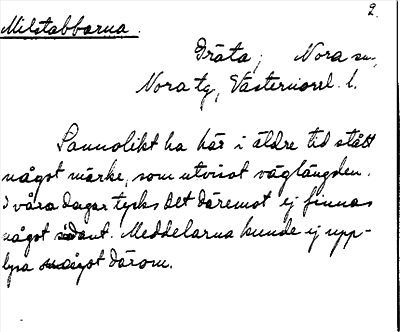 2.
Milstabbarna.
Dräta, Nora sn,
Nora tg, Västernorrl. l.
Sannolikt ha här i äldre tid stått
något märke, som utvisat väglängden.
I våra dagar tycks det däremot ej finnas
något sådant. Meddelarna kunde ej upp-
lysa något därom.